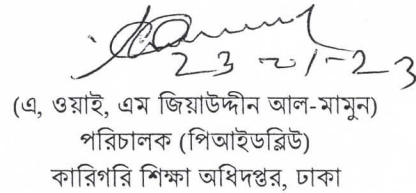 23-01-23
(এ, ওয়াই, এম জিয়াউদ্দীন আল-মামুন)
পরিচালক (পিআইডব্লিউ)
কারিগরি শিক্ষা অধিদপ্তর, ঢাকা